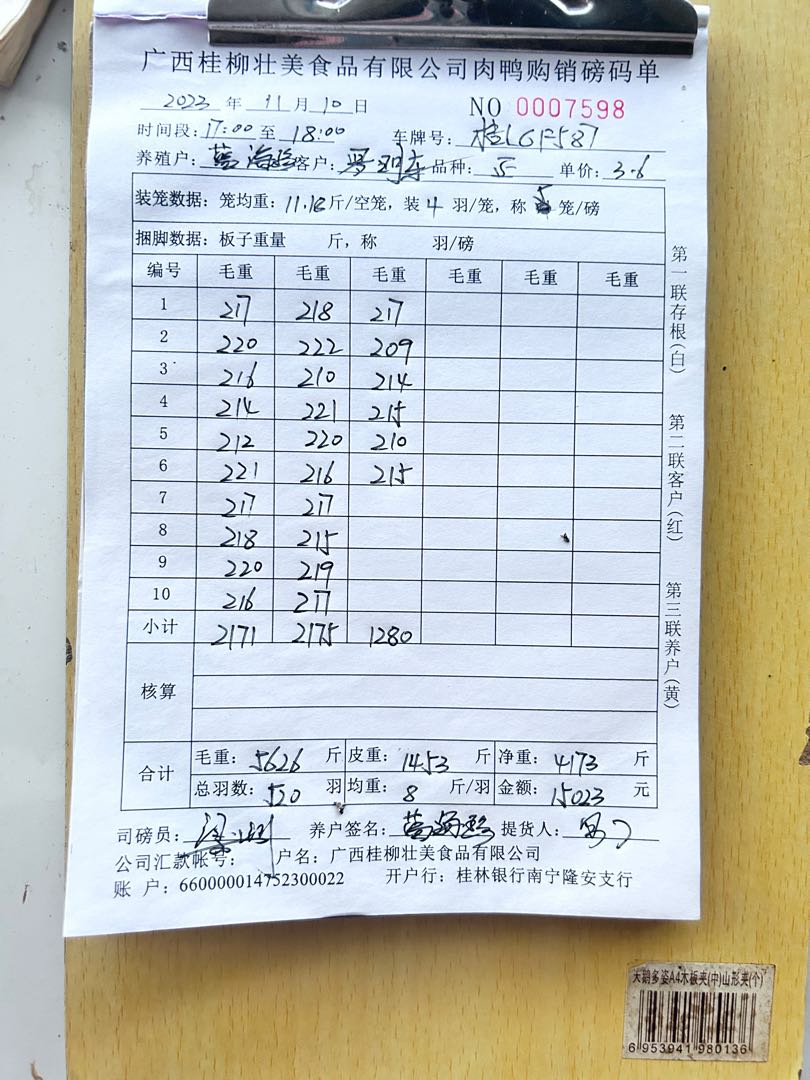 广西桂柳壮美食品有限公司肉鸭购销磅码单
2023 年 11 月 10 日 NO 0007598
时间段: 17:00 至 18:00 车牌号:
养殖户: 蓝海珍 客户: 品种: 单价: 3.6
装笼数据: 笼均重: 11.18 斤/空笼, 装 4 羽/笼, 称 5 笼/磅
捆脚数据: 板子重量 斤, 称 羽/磅
编号 毛重 毛重 毛重 毛重 毛重 毛重
1 217 218 217
2 220 222 209
3 216 210 214
4 214 221 215
5 212 220 210
6 221 216 215
7 217 217
8 218 215
9 220 219
10 216 217
小计 2171 2175 1280
核算
合计 毛重: 5626 斤 皮重: 1453 斤 净重: 4173 斤
总羽数: 520 羽 均重: 8 斤/羽 金额: 15023 元
司磅员: 养户签名: 蓝海珍 提货人:
公司汇款帐号: 户名: 广西桂柳壮美食品有限公司
账 户: 660000014752300022 开户行: 桂林银行南宁隆安支行
第一联存根(白) 第二联客户(红) 第三联养户(黄)
天鹅多姿A4木板夹(中)山形夹(个)
6 953941 980136